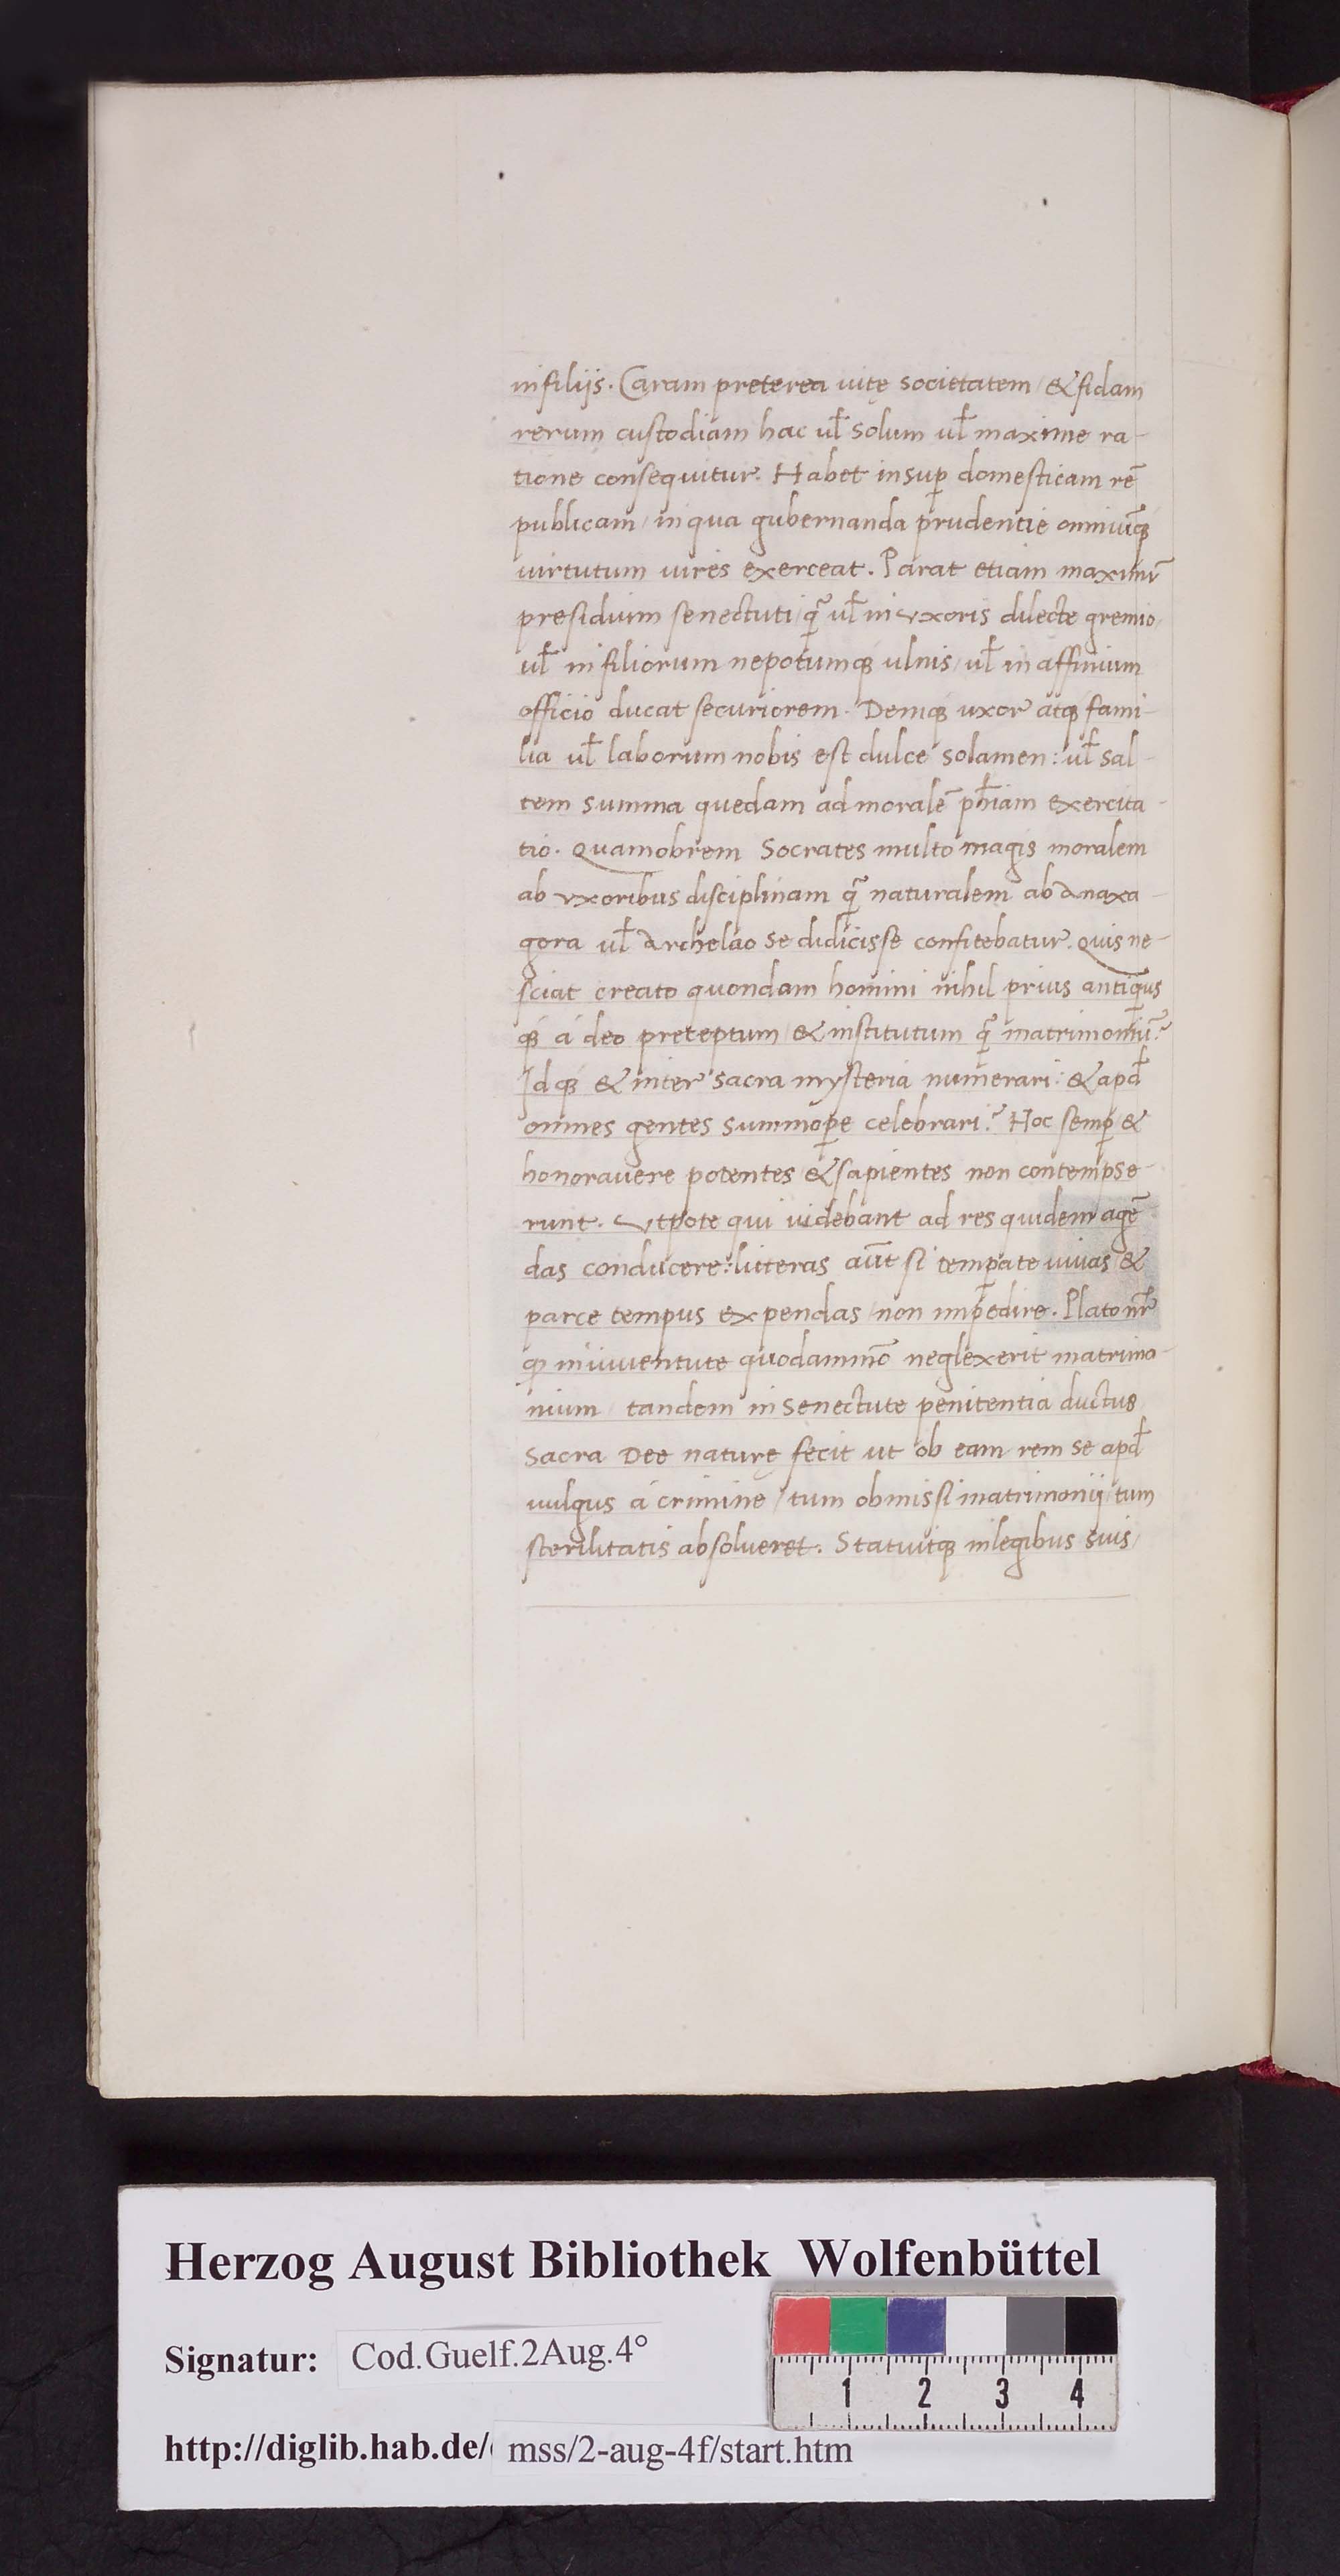 in filijs. Caram preterea uitę societatem / & fidam
rerum custodiam hac ul̃ solum ul̃ maxime ra-
tione consequitur. Habet insuꝑ domesticam rẽ
publicam / in qua gubernanda prudentie omniũqꝫ
uirtutum uires exerceat. Parat etiam maximũ
presidium senectuti / q̃ ul̃ in uxoris dilecte gremio /
ul̃ in filiorum nepotumqꝫ ulnis / ul̃ in affinium
officio ducat securiorem. Deniqꝫ uxor atqꝫ fami-
lia ul̃ laborum nobis est dulce solamen: ul̃ sal-
tem summa quedam ad moralẽ ph̃iam exercita-
tio. Quamobrem Socrates multo magis moralem
ab uxoribus disciplinam q̃ naturalem ab Anaxa-
gora ul̃ Archelao se didicisse confitebatur. Quis ne-
sciat creato quondam homini nihil prius antiquus
qꝫ á deo preceptum / & institutum q̃ matrimoniũ?
Idqꝫ & inter sacra mysteria numerari: & apđ
omnes gentes summoꝑe celebrari? Hoc semꝑ &
honorauere potentes / & sapientes non contempse-
runt. Utpote qui uidebant ad res quidem agẽ
das conducere: litteras aũt si temꝑate uiuas &
parce tempus expendas / non impedire. Plato nr̃
ꝙ in iuuentute quodammõ neglexerit matrimo-
nium / tandem in senectute penitentia ductus
Sacra Dee naturę fecit ut ob eam rem se apđ
uulgus á crimine / tum obmissi matrimonij / tum
sterilitatis absolueret. Statuitqꝫ in legibus suis /
Herzog August Bibliothek Wolfenbüttel
Signatur: Cod.Guelf.2Aug.4°
1 2 3 4
http://diglib.hab.de/ mss/2-aug-4f/start.htm